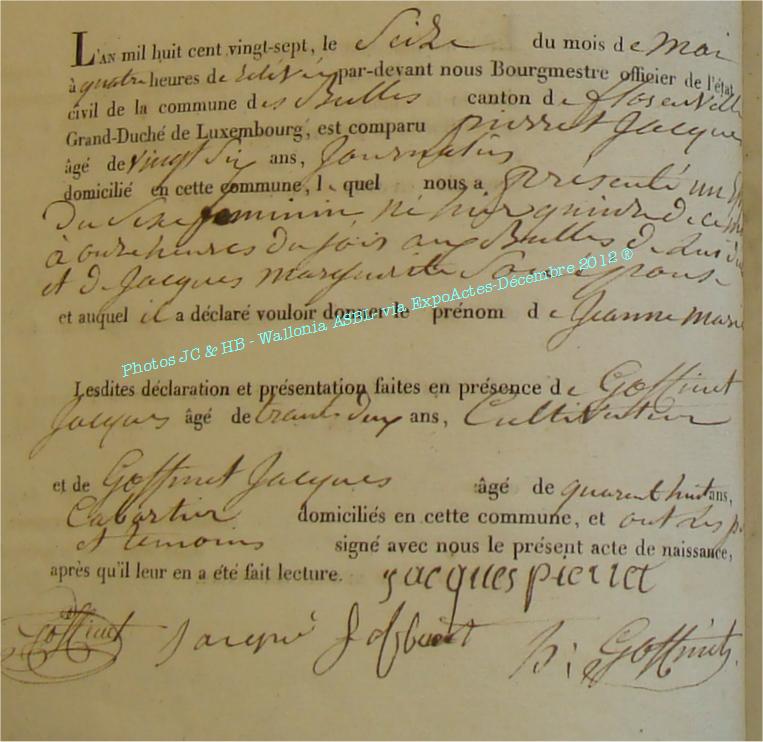 L'AN mil huit cent vingt-sept, le Seize du mois de mai
à quatre heures de relevée par-devant nous Bourgmestre officier de l'état
civil de la commune des Bulles canton de florenville
Grand-Duché de Luxembourg, est comparu pierret Jacque
âgé de vingt Six ans, Journalier
domicilié en cette commune, le quel nous a présenté un
Du Sexe feminin né hier quinze de ce
à onze heures du soir aux Bulles de lui
et de Jacques marguerite Son épouse
et auquel il a déclaré vouloir donner le prénom de Jeanne marie
Photos JC & HB - Wallonia ASBL-via ExpoActes-Décembre 2012 ®
Lesdites déclaration et présentation faites en présence de Goffinet
Jacques âgé de trente deux ans, Cultivateur
et de Goffinet Jacques âgé de quarent huit ans,
Cabartier domiciliés en cette commune, et ont les
et temoins signé avec nous le présent acte de naissance,
après qu'il leur en a été fait lecture. jacques pierret
Goffinet Jacque Goffinet Goffinet